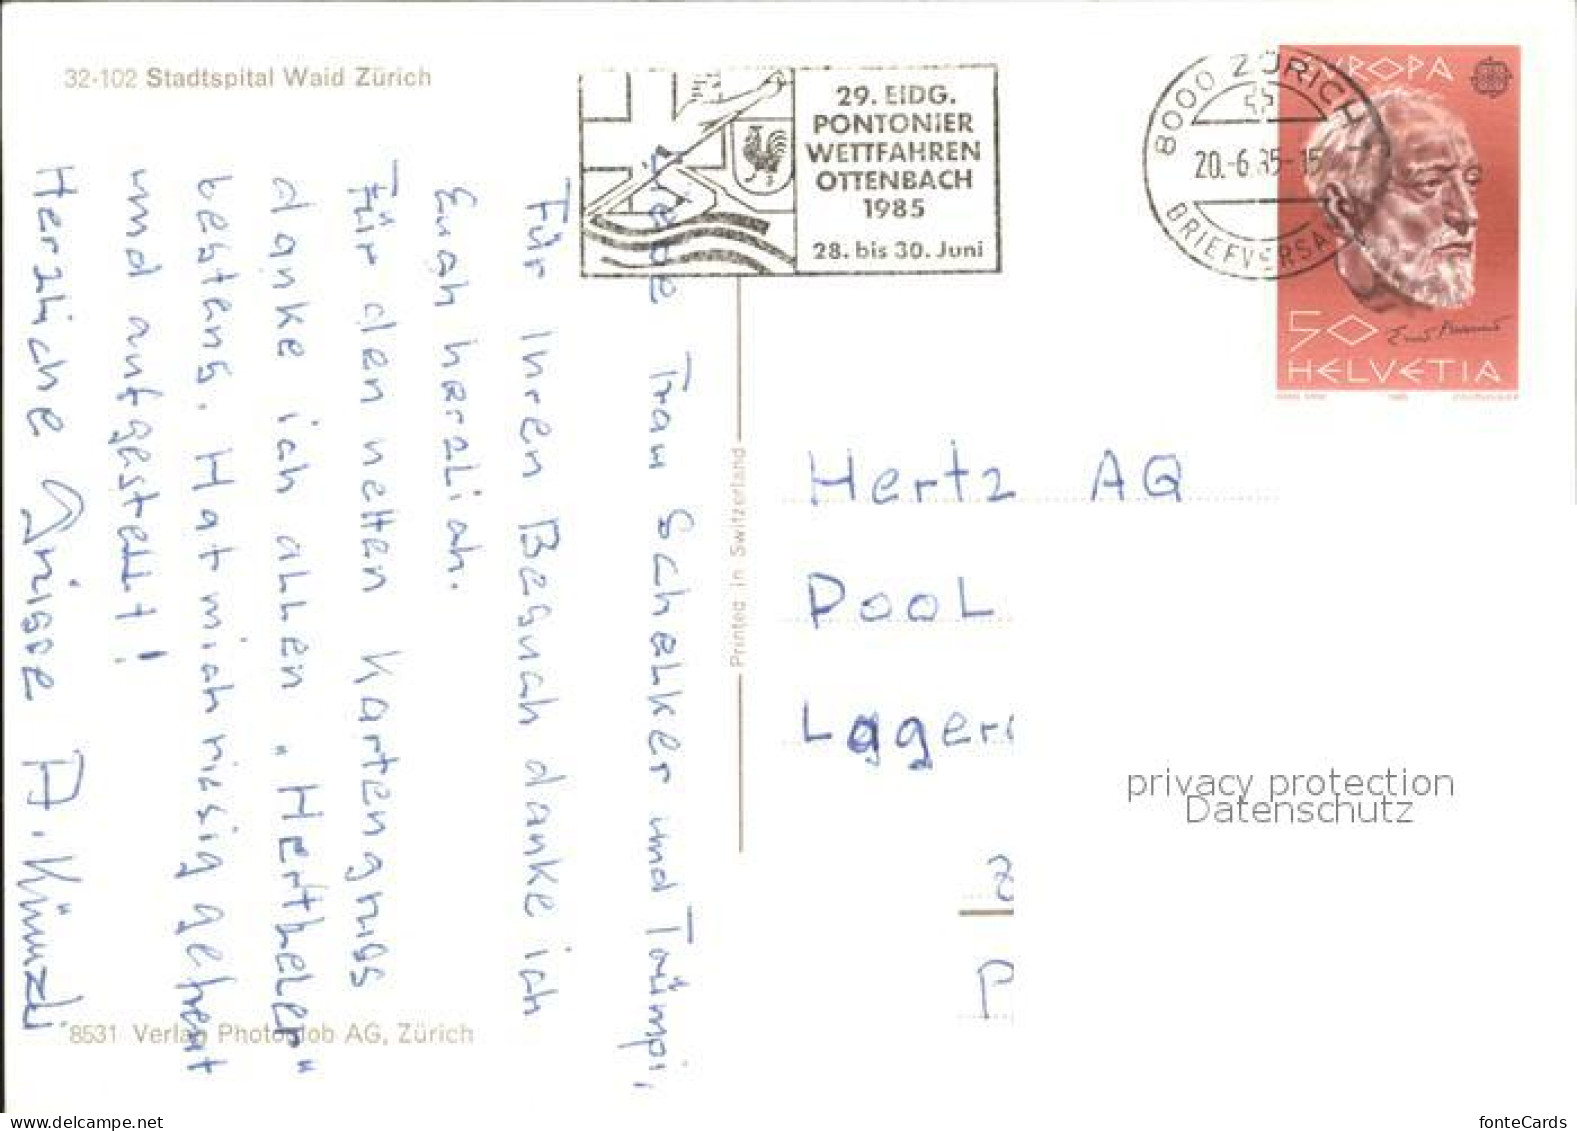 32-102 Stadtspital Waid Zürich
29. EIDG.
PONTONIER
WETTFAHREN
OTTENBACH
1985
28. bis 30. Juni
8000 ZÜRICH 1
20.-6.85-15
BRIEFVERSAND
EUROPA
50
HELVETIA
Liebe Frau Schelker und Trümpi,
Für Ihren Besuch danke ich
Euch herzlich.
Für den netten Kartengruss
danke ich allen „Hertheler"
bestens. Hat mich riesig gefreut
und aufgestellt!
Herzliche Grüsse A. Künzli
Printed in Switzerland
Hertz AG
Pool
Lager
Z
P
privacy protection
Datenschutz
8531 Verlag Photoglob AG, Zürich
delcampe.net
fonteCards